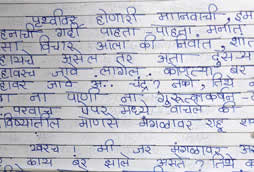 पृथ्वीवर होणारी मानवाची, इम
हनाची गर्दी पाहता पाहता मनात
सा विचार आला की निवांत, शांत
हायचे असेल तर आता दुसऱ्या
हावरच जावे लागेल. कोणत्या बर
हावर जावे चंद्र? नको, तिथे
ना पाणी ना गुरुत्वाकर्षण
परवाच पेपर मध्ये वाचले की
विष्यातील माणसे मंगळावर राहू
खरंच! मी जर मंगळावर
काय बरं झाले असते? तिथे